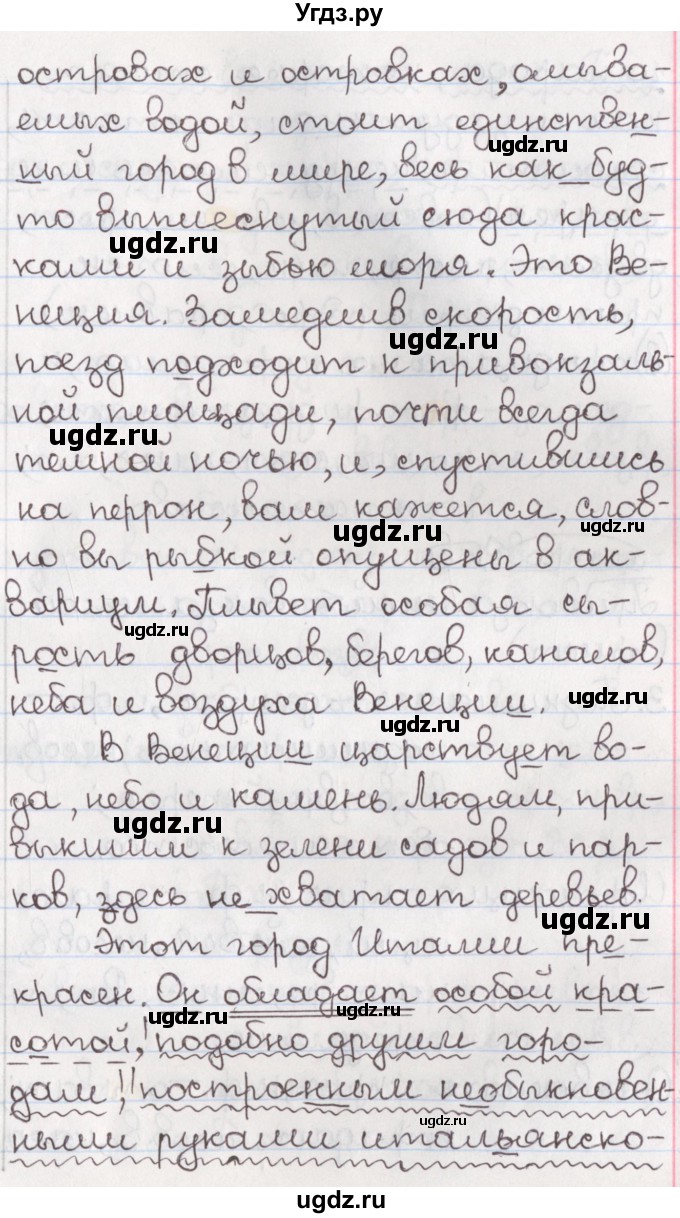 Угдз.ру
островах и островках, омыва-
емых водой, стоит единствен-
ugdz.ru
ный город в мире, весь как буд-
то выплеснутый сюда крас-
ugdz.ru
ками и зыбью моря. Это Ве-
неция. Замедлив скорость,
ugdz.ru
поезд подходит к привокзаль-
ной площади, почти всегда
ugdz.ru
темной ночью, и, спустившись
на перрон, вам кажется, слов-
ugdz.ru
ugdz.ru
но вы рыбкой опущены в ак-
вариум. Плывет особая сы-
ugdz.ru
рость дворцов, берегов, каналов,
неба и воздуха Венеции.
ugdz.ru
ugdz.ru
В Венеции царствует во-
да, небо и камень. Людям, при-
ugdz.ru
выкшим к зелени садов и пар-
ков, здесь не хватает деревьев.
ugdz.ru
Этот город Италии пре-
красен. Он обладает особой кра-
ugdz.ru
ugdz.ru
сотой, подобно другим горо-
дам, построенным необыкновен-
ugdz.ru
ными руками итальянско-
ugdz.ru